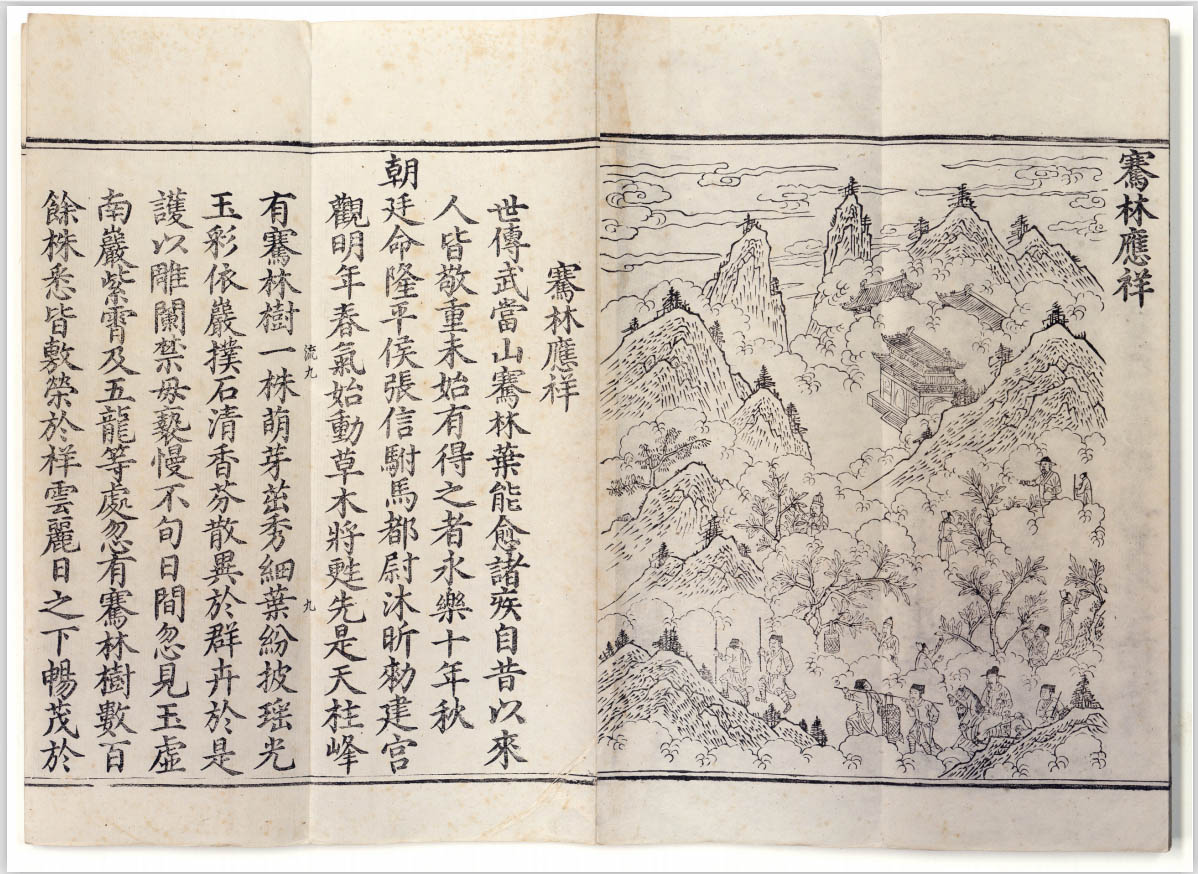 騫林應祥
騫林應祥
世傳武當山騫林葉能愈諸疾自昔以來
人皆敬重未始有得之者永樂十年秋
朝廷命隆平侯張信駙馬都尉沐昕勑建宮
觀明年春氣始動草木將甦先是天柱峰
流九
九
有騫林樹一株萌芽茁秀細葉紛披瑶光
玉彩依巖撲石清香芬散異於群卉於是
護以雕闌禁毋褻慢不旬日間忽見玉虛
南巖紫霄及五龍等處忽有騫林樹數百
餘株悉皆敷榮於祥雲麗日之下暢茂於